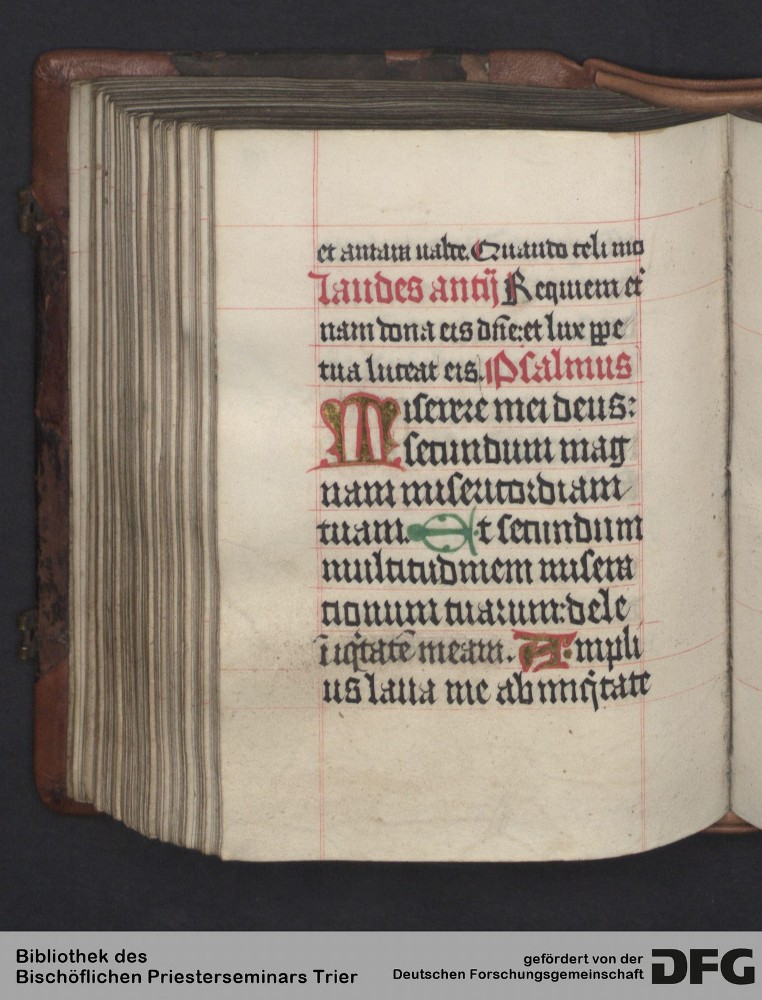 et amara valde. Quando celi mo
Laudes antij Requiem et̾
nam dona eis dn̄e: et lux ꝑpe
tua luceat eis. Psalmus
Miserere mei deus:
secundum mag
nam misericordiam
tuam. Et secundum
multitudinem misera
cionum tuarum: dele
īiq̄tatē meam. Ampli
us laua me ab iniq̄tate
Bibliothek des
Bischöflichen Priesterseminars Trier
gefördert von der
Deutschen Forschungsgemeinschaft
DFG